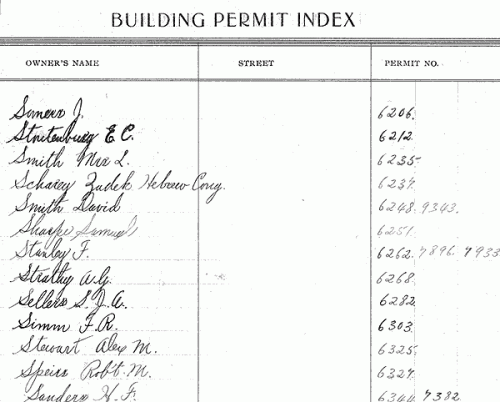 BUILDING PERMIT INDEX
OWNER'S NAME STREET PERMIT NO.
Somers J. 6206.
Stoutenburg E C. 6212.
Smith Mrs L. 6235
Scharey Zedek Hebrew Cong. 6237.
Smith David 6248. 9343.
Sharpe Samuel 6251.
Stanley F. 6262. 7896. 7933
Strathy A.G. 6268.
Sellers S. J. A. 6282.
Simm F. R. 6303.
Stewart Alex M. 6325.
Speirs Rob't M. 6327.
Sanders H. F. 6344 7382